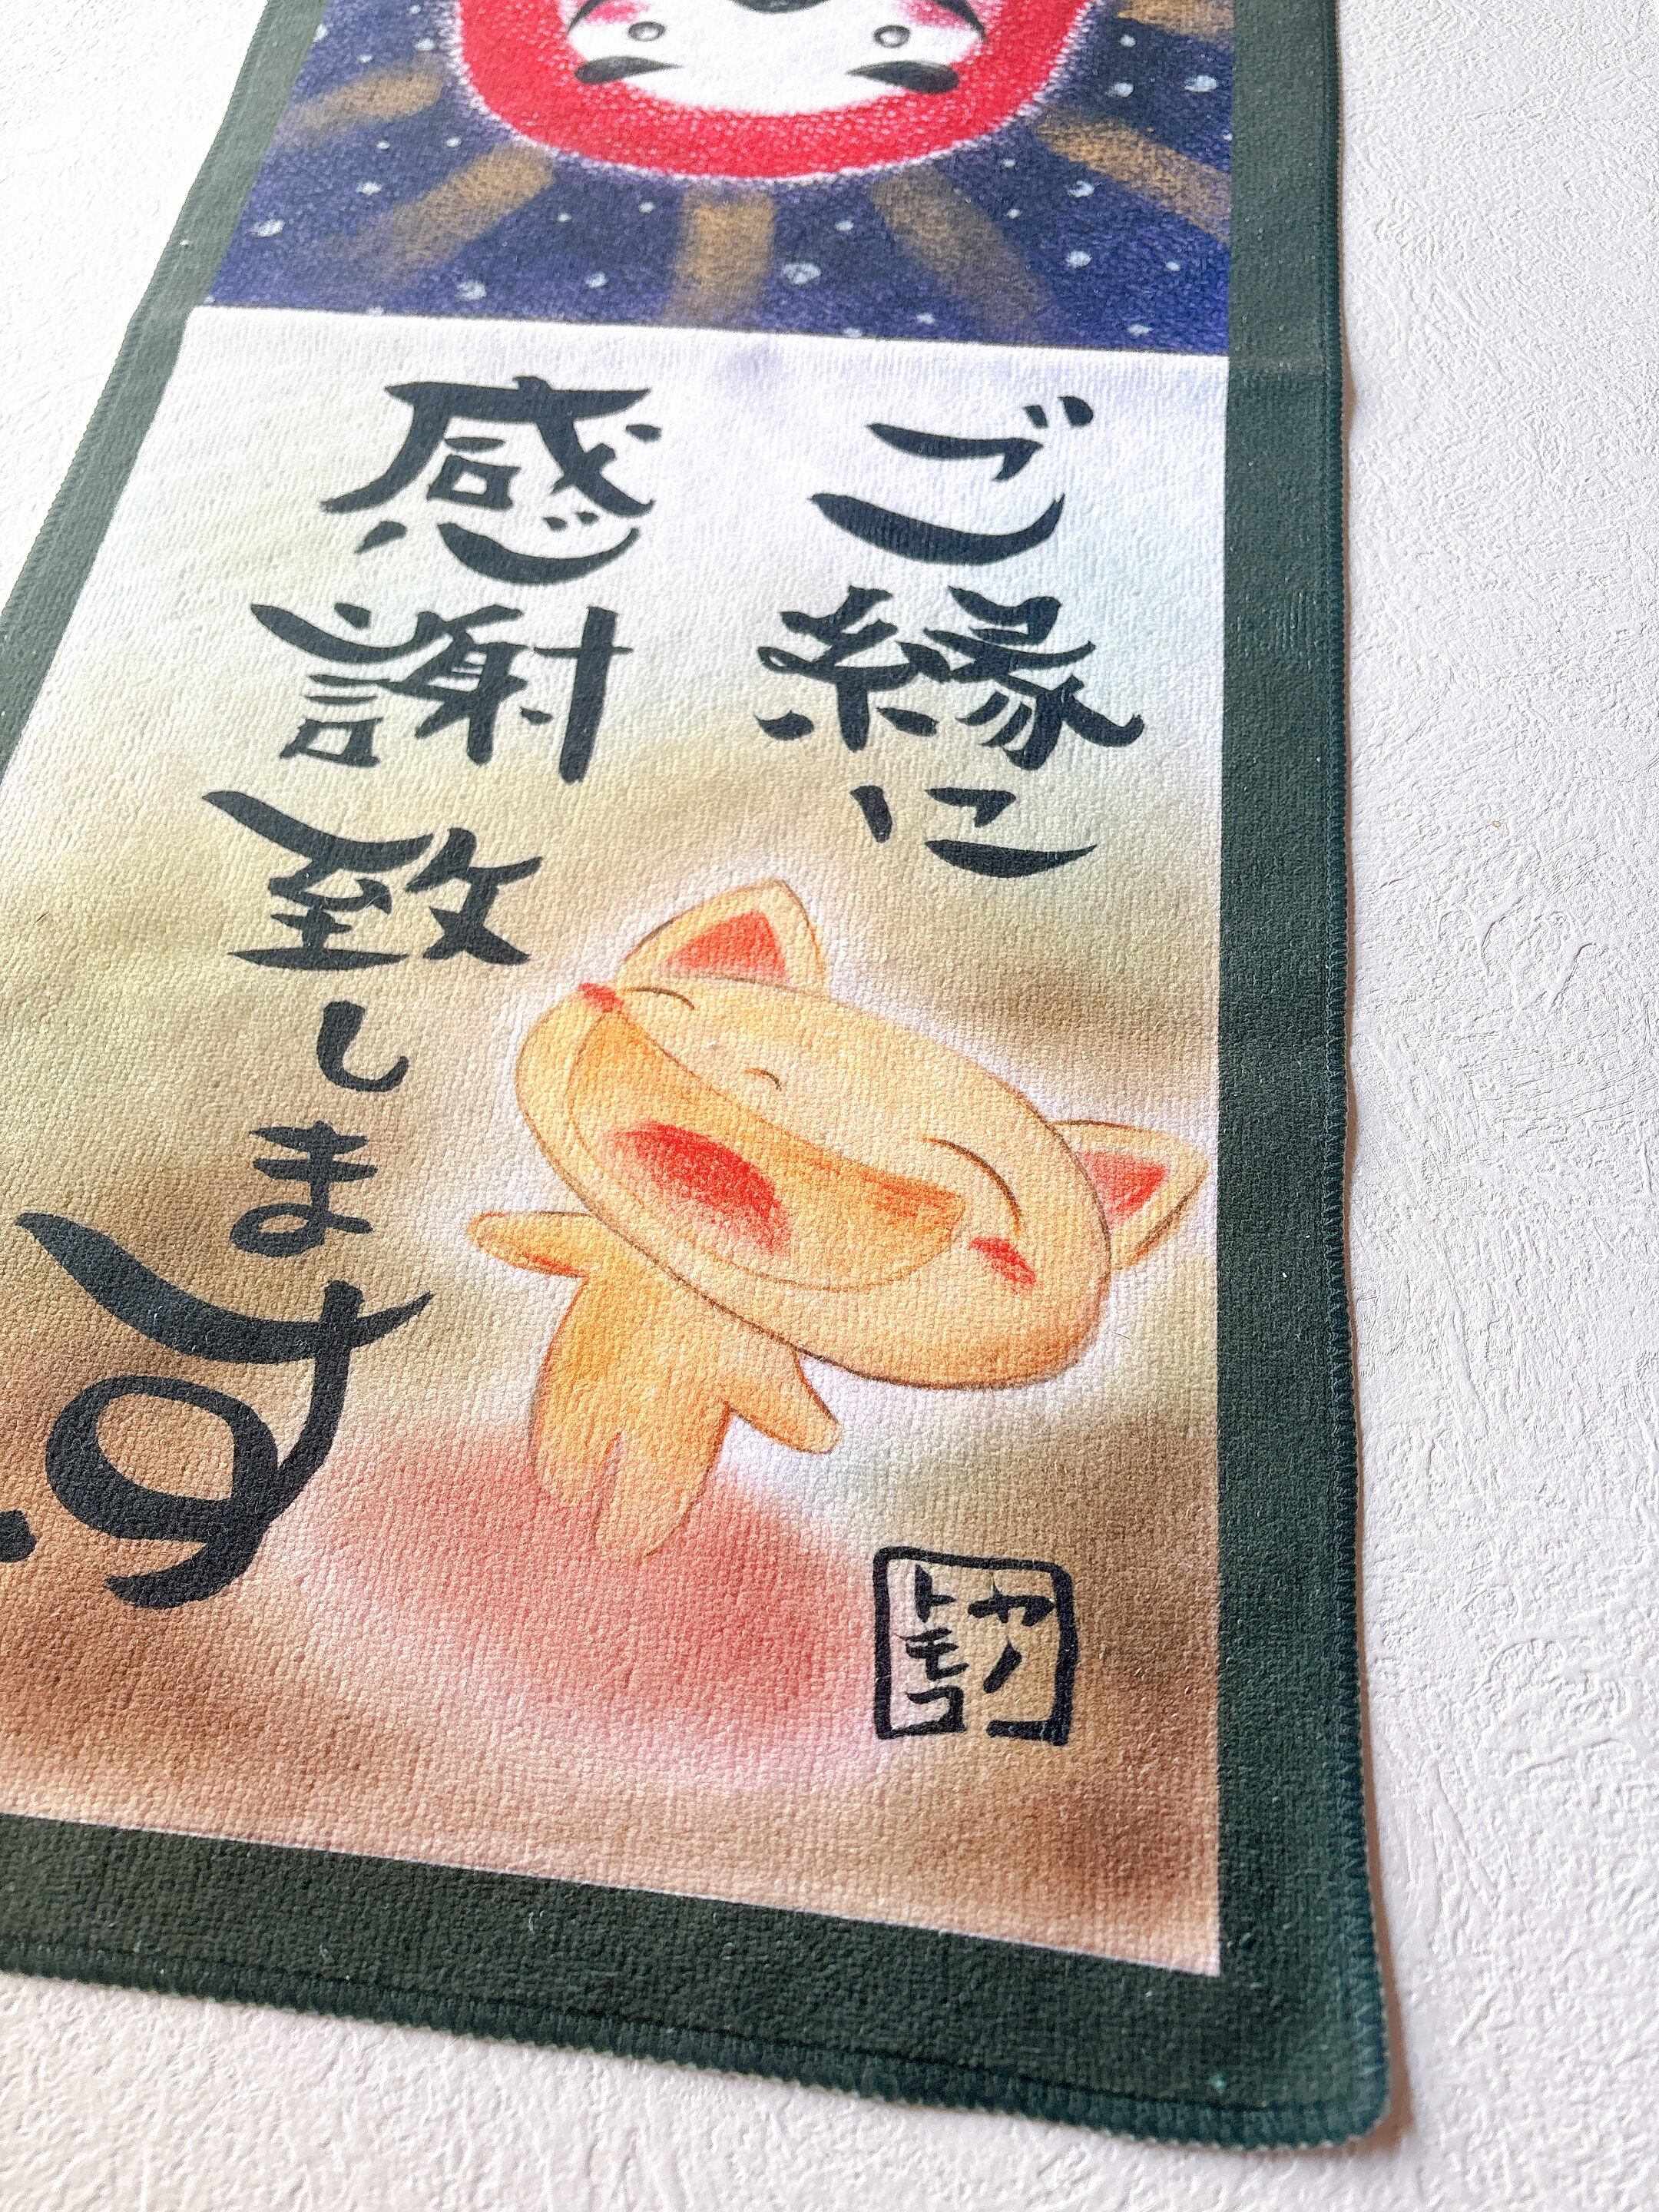 ご縁に
感謝致します
ヤノ
トモコ